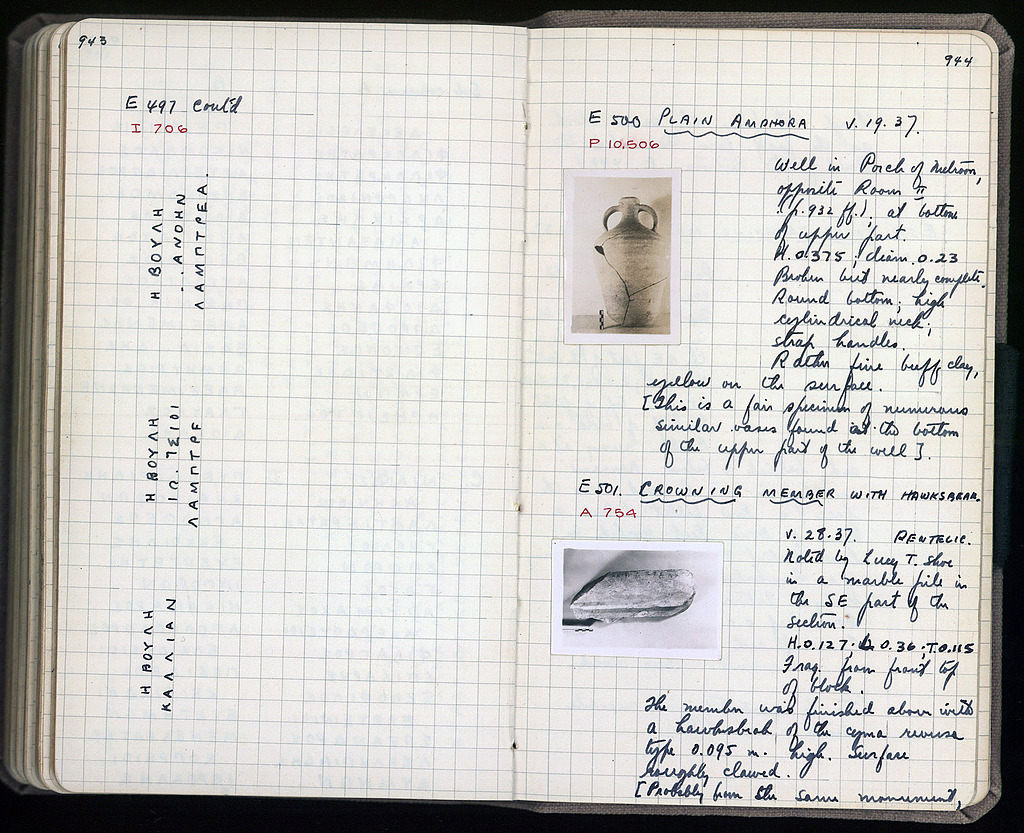 943
E 497 Cont'd
I 706
Η ΒΟΥΛΗ
. . ΑΝΟΗΝ
ΛΑΜΠΤΡΕΑ.
Η ΒΟΥΛΗ
ΛΑΜΠΤΡΕ
Η ΒΟΥΛΗ
ΚΑΛΛΙΑΝ
944
E 500 PLAIN AMPHORA V. 19. 37.
P 10,506
Well in Porch of Metroon,
opposite Room II
(p. 932 ff.); at bottom
of upper part.
H. 0.375; diam. 0.23
Broken but nearly complete.
Round bottom; high
cylindrical neck;
strap handles.
Rather fine buff clay,
yellow on the surface.
[This is a fair specimen of numerous
similar vases found at the bottom
of the upper part of the well].
E 501. CROWNING MEMBER WITH HAWKSBEAK.
A 754
V. 28. 37. PENTELIC.
Noted by Lucy T. Shoe
in a marble pile in
the SE part of the
Section.
H. 0.127; L 0.36; T. 0.115
Frag. from front top
of block.
The member was finished above with
a hawksbeak of the cyma reversa
type 0.095 m. high. Surface
roughly clawed.
[Probably from the same monument,